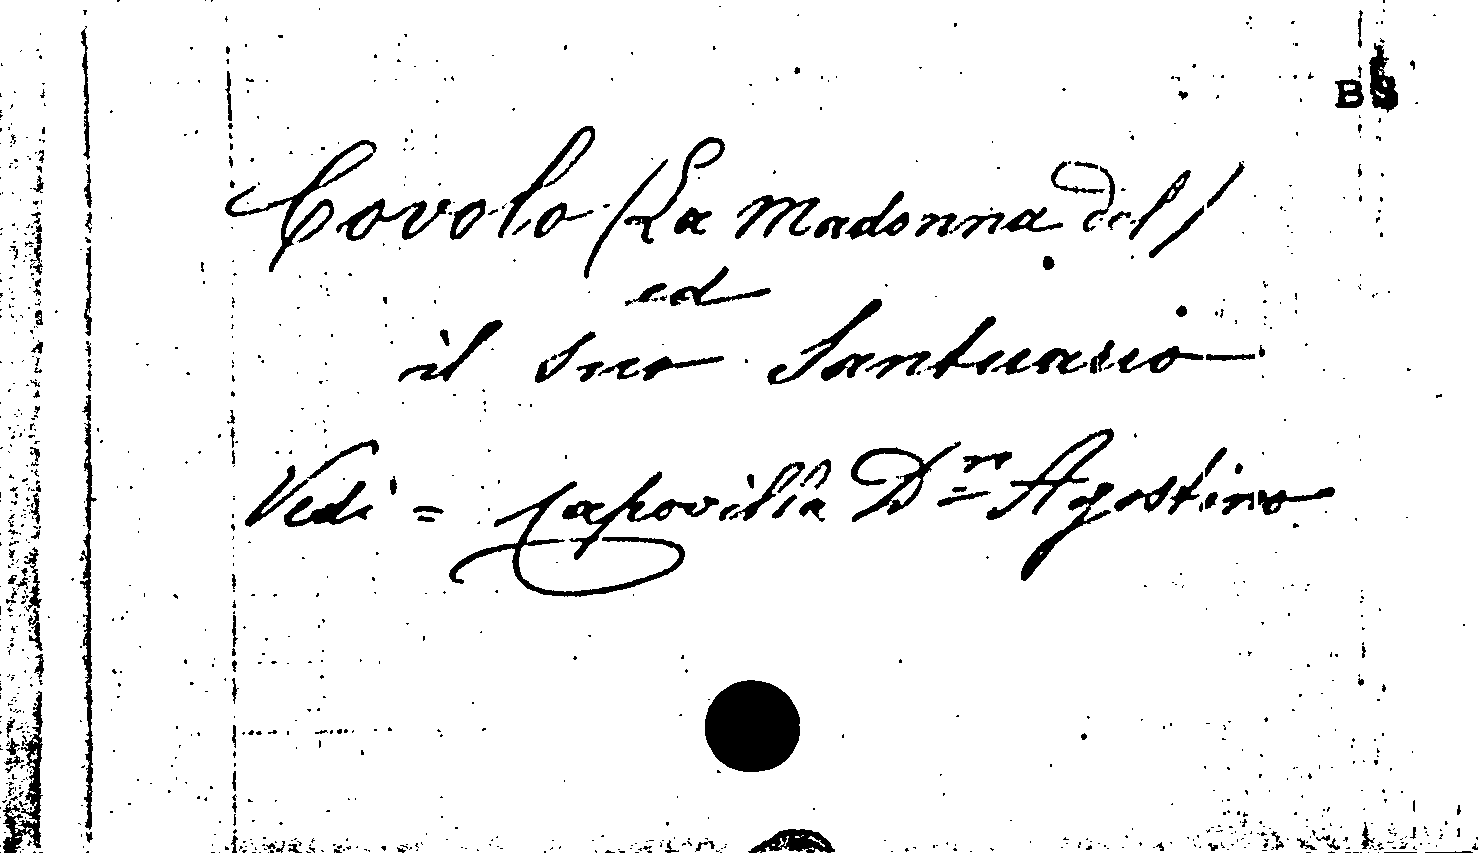 BS
Covolo (La Madonna del)
ed
il suo Santuario
Vedi = Capovilla Dn Agostino